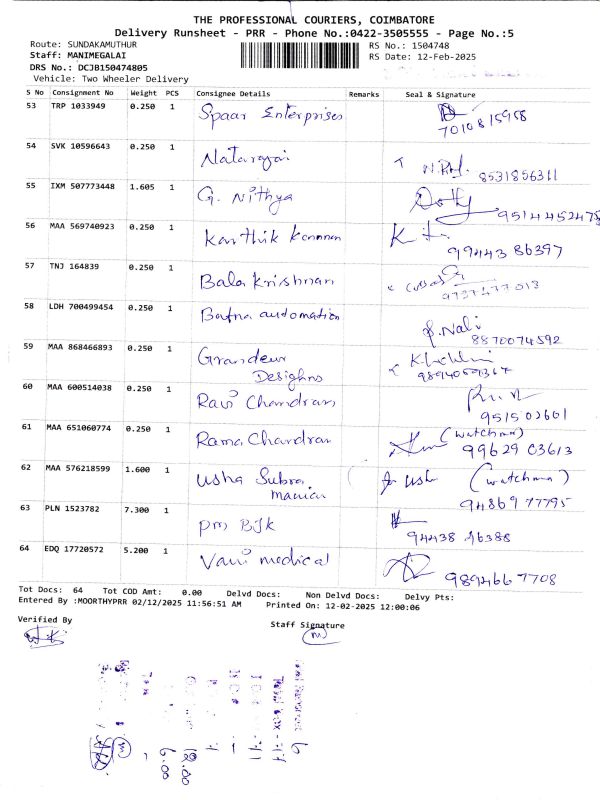 THE PROFESSIONAL COURIERS, COIMBATORE
Delivery Runsheet - PRR - Phone No.:0422-3505555 - Page No.:5
Route: SUNDAKAMUTHUR
RS No.: 1504748
Staff: MANIMEGALAI
RS Date: 12-Feb-2025
DRS No.: DCJB150474805
Vehicle: Two Wheeler Delivery
S No Consignment No Weight PCS Consignee Details Remarks Seal & Signature
53 TRP 1033949 0.250 1 Spaar Enterprises 7010815958
54 SVK 10596643 0.250 1 Natarajan 8531856311
55 IXM 507773448 1.605 1 G. Nithya 9514452475
56 MAA 569740923 0.250 1 Karthik Kannan 9944386397
57 TNJ 164839 0.250 1 Bala Krishnan
58 LDH 700499454 0.250 1 Bafna automation 8870074592
59 MAA 868466893 0.250 1 Grandeur Designns
60 MAA 600514038 0.250 1 Ravi Chandran 951502601
61 MAA 651060774 0.250 1 Rama Chandran (watchman) 99629 03613
62 MAA 576218599 1.600 1 Usha Subra manian for Usha (watchman) 94869 77795
63 PLN 1523782 7.300 1 Pm BJk 94438 16388
64 EDQ 17720572 5.200 1 Vani medical 9894667708
Tot Docs: 64 Tot COD Amt: 0.00 Delvd Docs: Non Delvd Docs: Delvy Pts:
Entered By :MOORTHYPRR 02/12/2025 11:56:51 AM Printed On: 12-02-2025 12:00:06
Verified By
Staff Signature
6.00
12.00